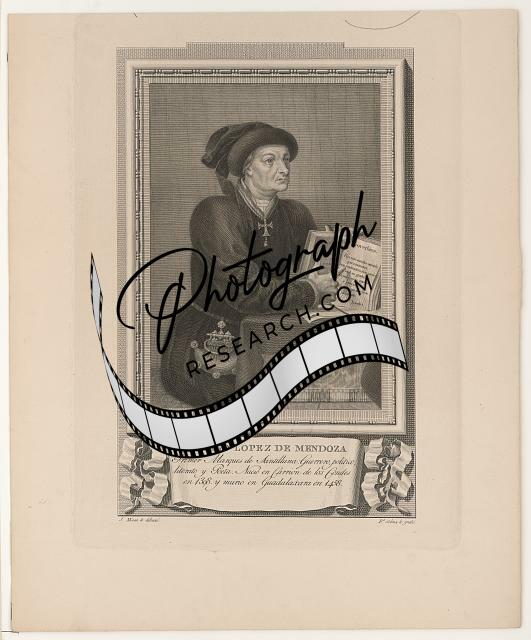 Photograph
RESEARCH.COM
LOPEZ DE MENDOZA
Primer Marques de Santillana, Guerrero, politico,
literato y Poeta. Nació en Carrion de los Condes
en 1398. y murió en Guadalaxara en 1458.